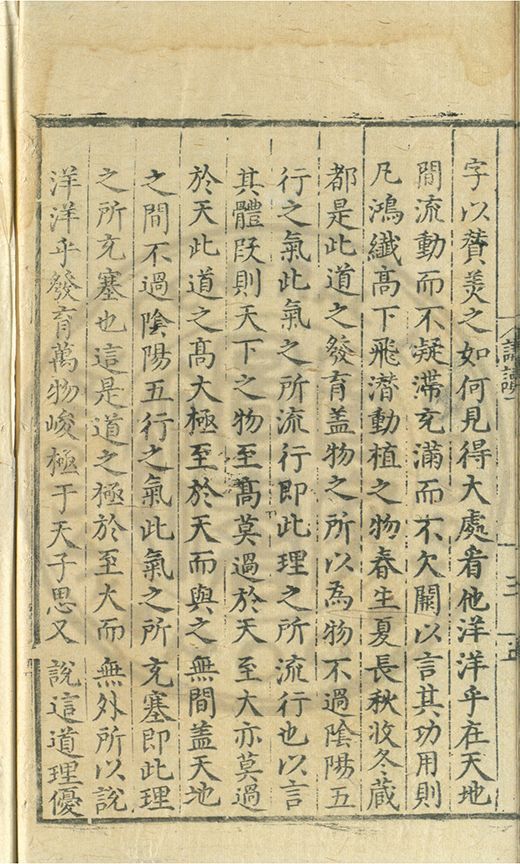 字以贊羙之如何見得大處看他洋洋乎在天地
間流動而不凝滯充滿而不欠闕以言其功用則
凡鴻纖髙下飛潛動植之物春生夏長秋收冬藏
都是此道之發育盖物之所以為物不過陰陽五
行之氣此氣之所流行即此理之所流行也以言
其體段則天下之物至髙莫過於天至大亦莫過
於天此道之髙大極至於天而與之無間盖天地
之間不過陰陽五行之氣此氣之所充塞即此理
之所充塞也這是道之極於至大而無外所以說
洋洋乎發育萬物峻極于天子思又說這道理優